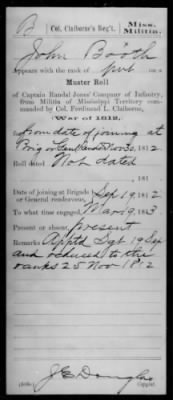 B Col. Claiborne's Reg't. Miss. Militia.
John Booth
Appears with the rank of pvt on a
Muster Roll
of Captain Randal Jones' Company of Infantry,
from Militia of Mississippi Territory commanded
by Col. Ferdinand L. Claiborne,
(War of 1812,)
from date of joining at
Brig or Genl Rendez to Nov 30, 1812
Roll dated Not dated
, 181
Date of joining at Brigade
or General rendezvous, Sep 19, 1812
To what time engaged, Mar 19, 1813
Present or absent, present
Remarks Apptd Sgt 19 Sep
and reduced to the
ranks 25 Nov 1812
J E Douglas
Copyist.